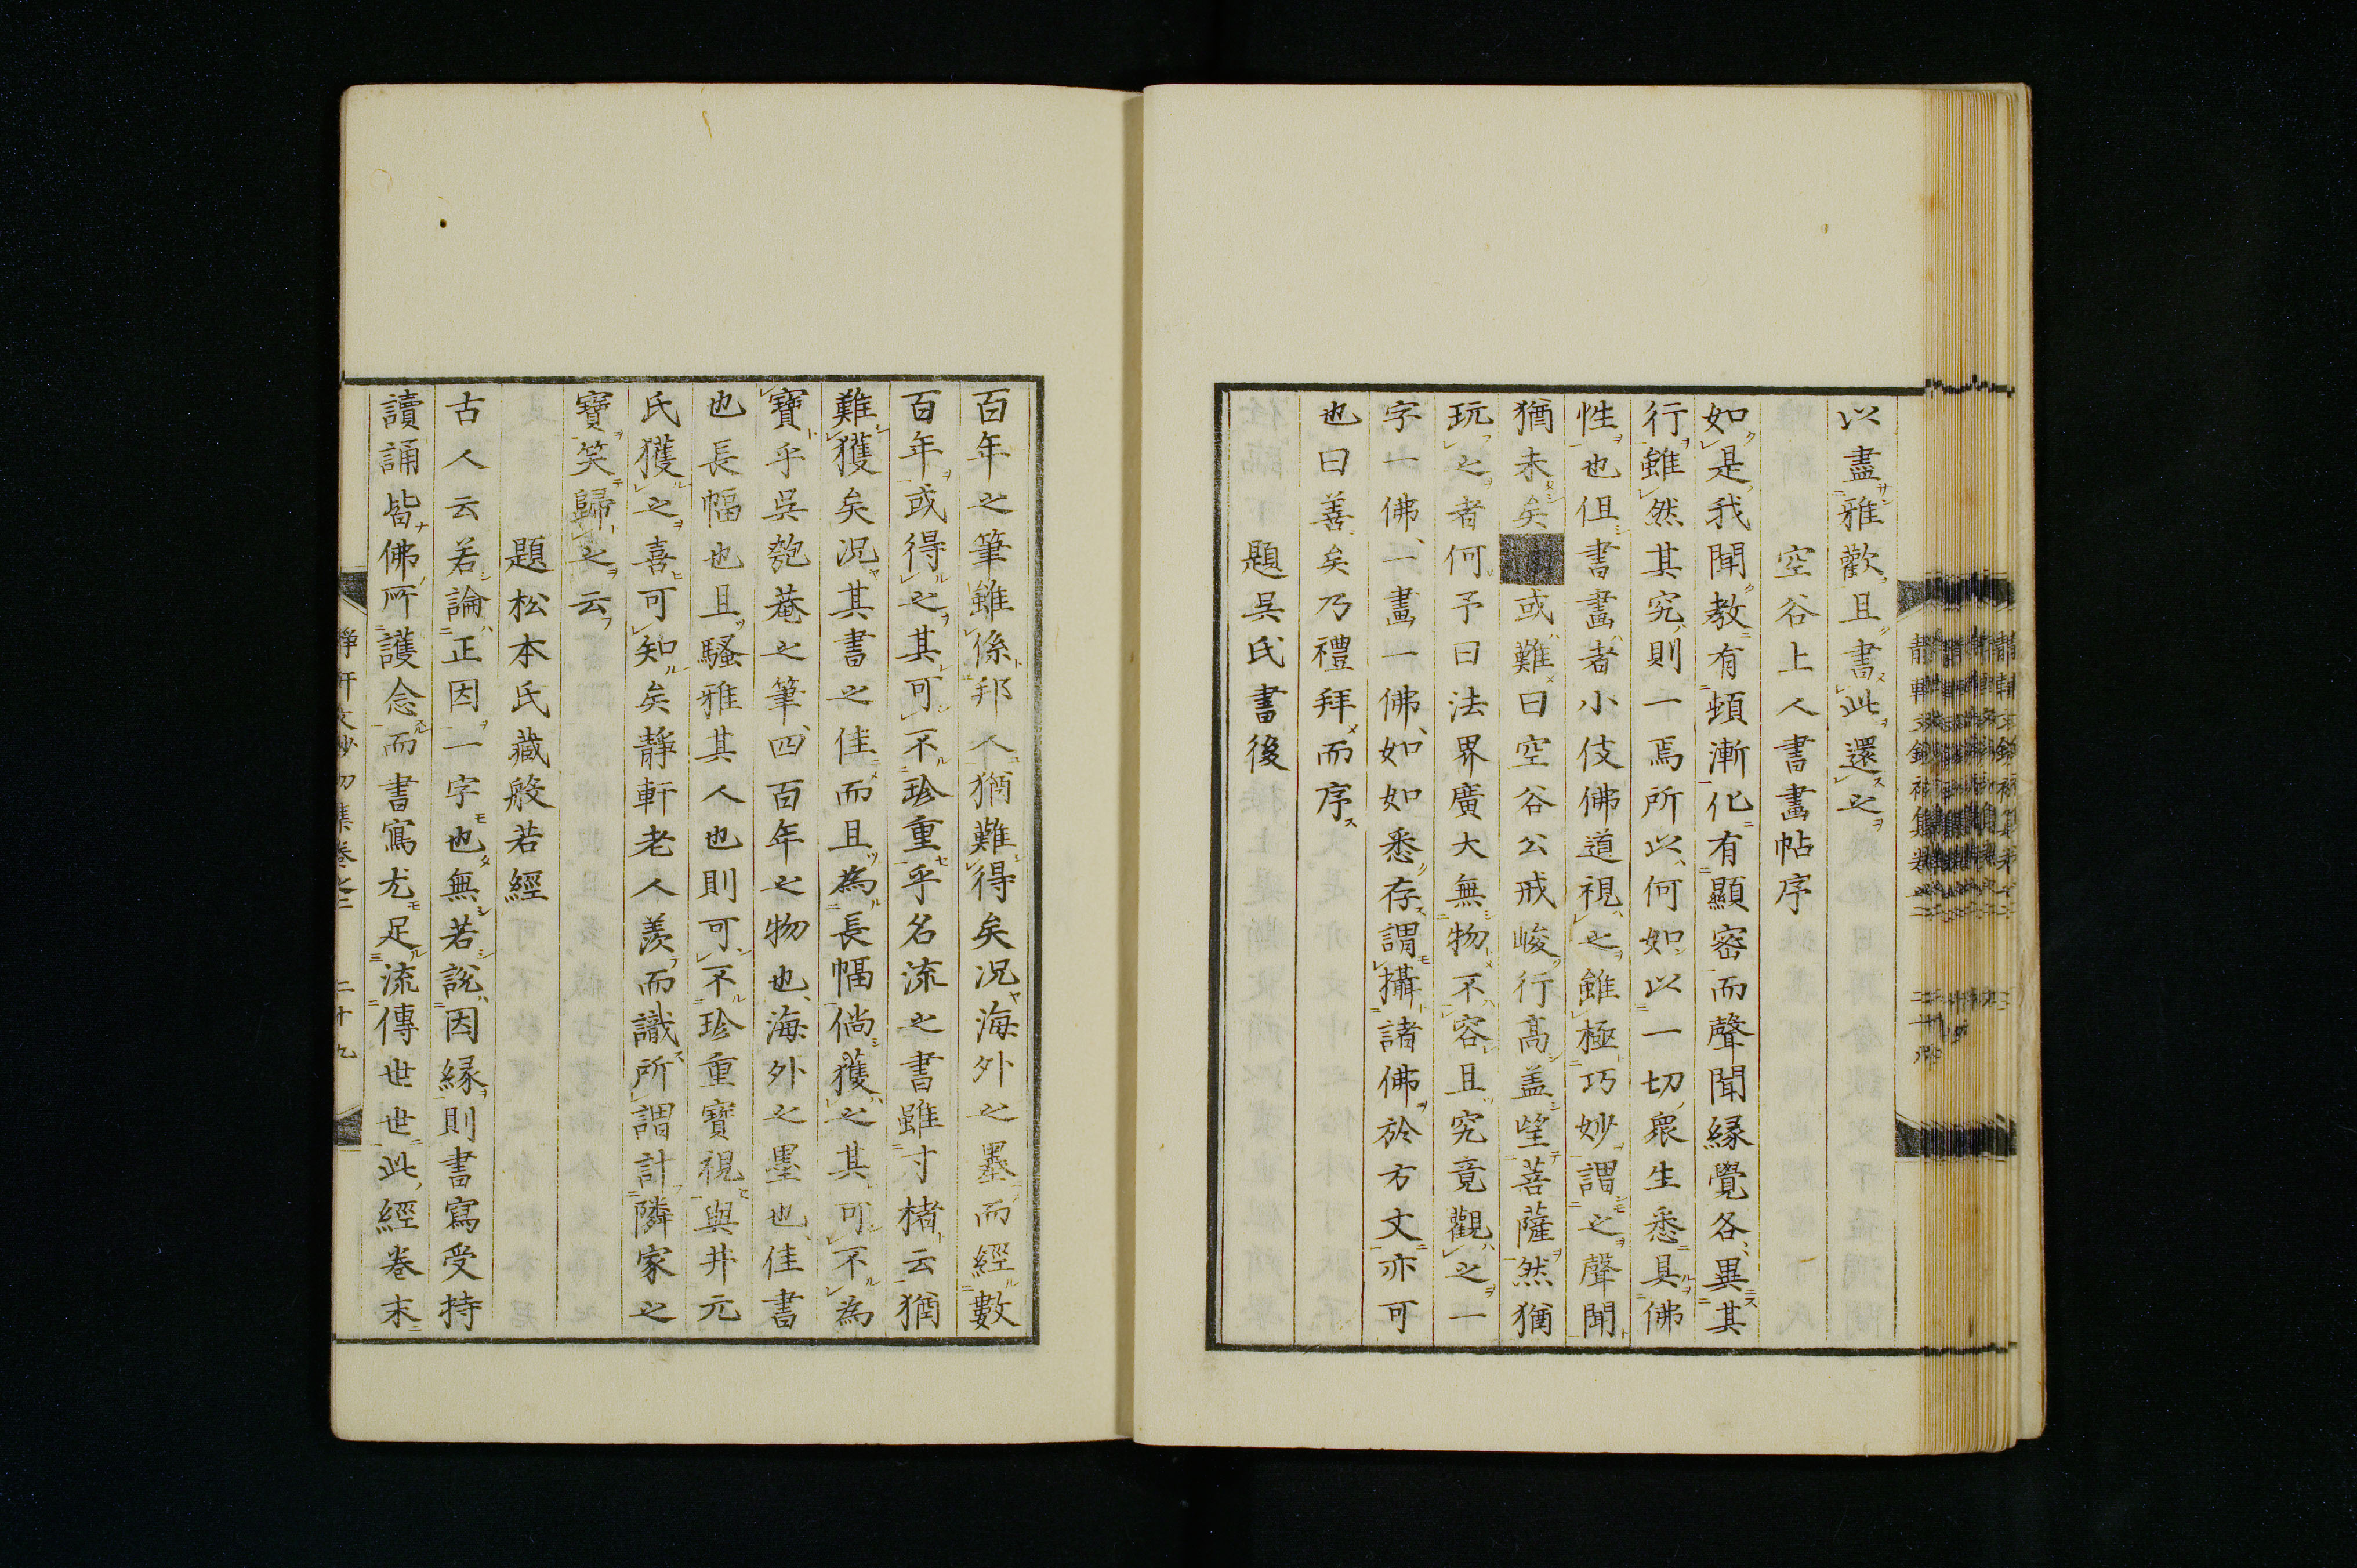 以盡雅歡且書此還之
空谷上人書畫帖序
如是我聞教有頓漸化有顯密而聲聞縁覺各異其
行雖然其究則一焉所以何如以一切衆生悉具佛
性也但書畫者小伎佛道視之雖極巧妙謂之聲聞
猶未矣或難曰空谷公戒峻行高盖望菩薩然猶
玩之者何予曰法界廣大無物不容且究竟觀之一
字一佛一畫一佛如如悉存謂攝諸佛於方丈亦可
也曰善矣乃禮拜而序
題吳氏書後
百年之筆雖係邦人猶難得矣況海外之墨而經數
百年或得之其可不珍重乎名流之書雖寸楮云猶
難獲矣況其書之佳而且為長幅倘獲之其可不為
寶乎吳匏菴之筆四百年之物也海外之墨也佳書
也長幅也且騷雅其人也則可不珍重寶視與井元
氏獲之喜可知矣靜軒老人羨而識所謂計隣家之
寶笑歸之云
題松本氏藏般若經
古人云若論正因一字也無若說因縁則書寫受持
讀誦皆佛所護念而書寫尤足流傳世世此經卷末
靜軒文鈔初集卷之二 二十九